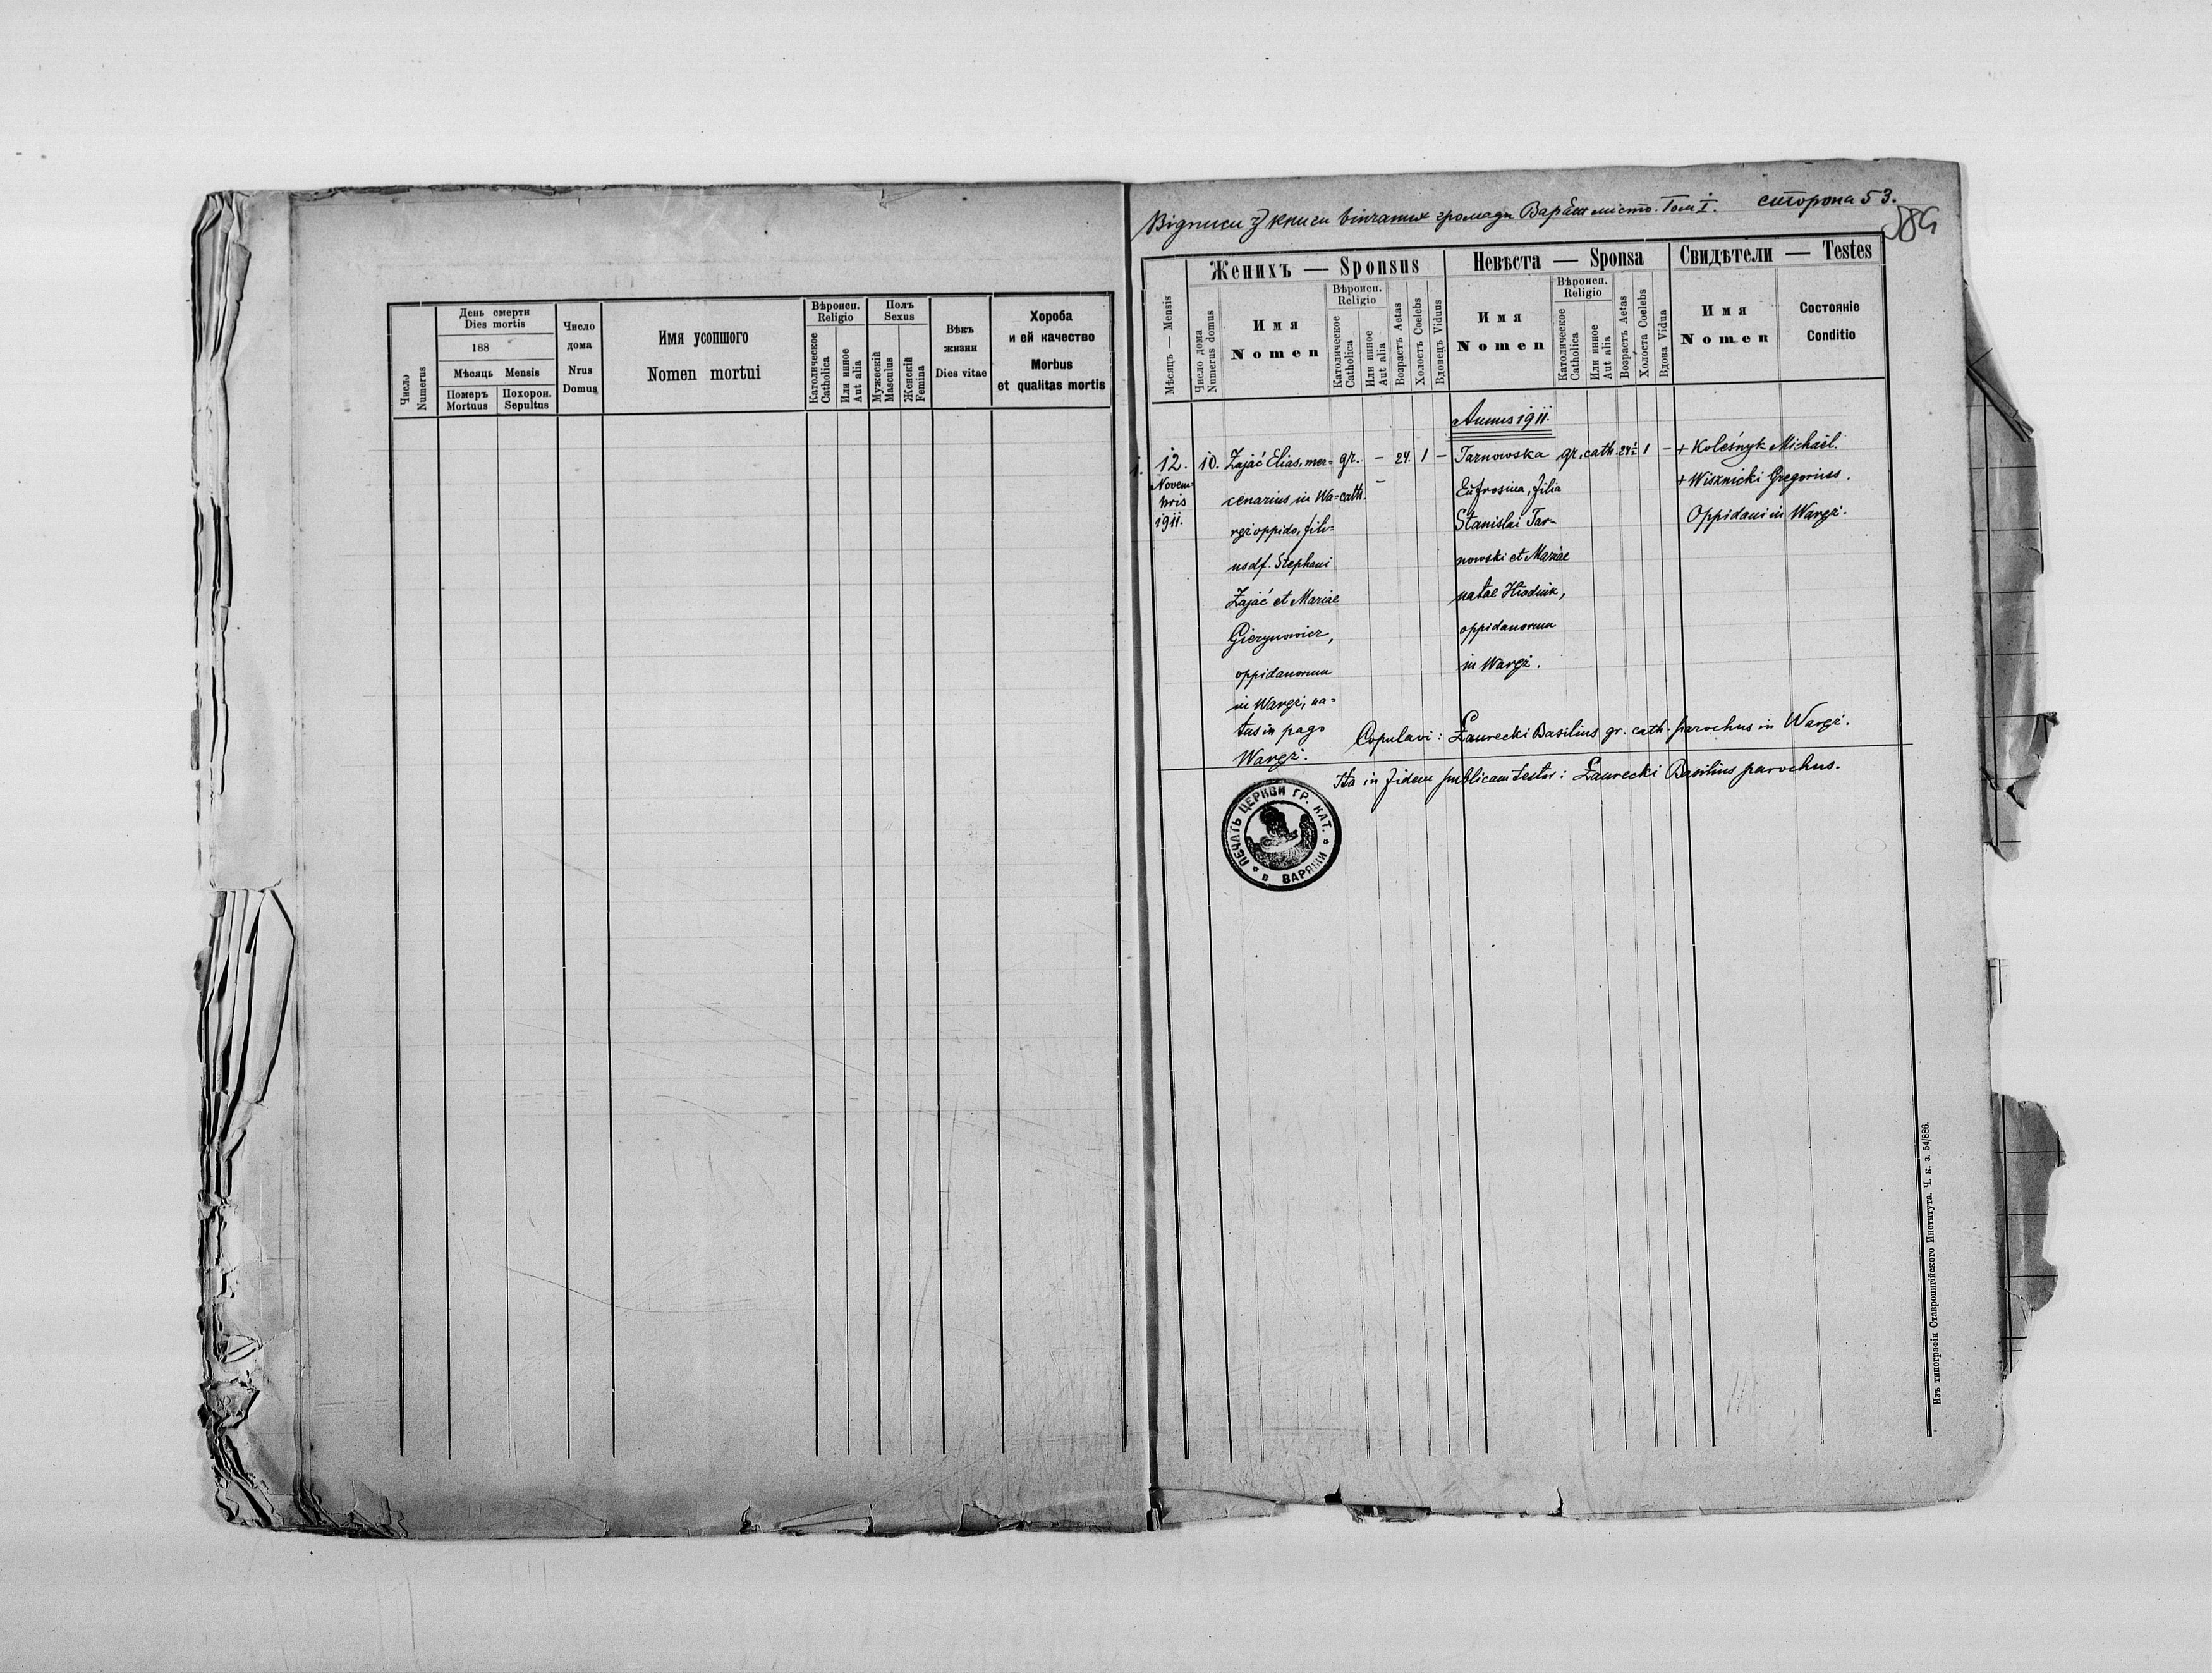 День смерти
Dies mortis
188
Мѣсяць Mensis
Число
Numerus
Померъ
Mortuus
Похорон.
Sepultus
Число
дома
Nrus
Domus
Имя усопшого
Nomen mortui
Вѣроисп.
Religio
Католическое
Catholica
Или инное
Aut alia
Полъ
Sexus
Мужескій
Masculus
Женскій
Femina
Вѣкъ
жизни
Dies vitae
Хороба
и ей качество
Morbus
et qualitas mortis
Відписи з книги вінчаних громади Варяж місто. Том I. сторона 53.
Мѣсяць — Mensis
Женихъ — Sponsus
Число дома
Numerus domus
Имя
Nomen
Вѣроисп.
Religio
Католическое
Catholica
Или инное
Aut alia
Возрастъ Aetas
Холостъ Coelebs
Вдовецъ Viduus
Невѣста — Sponsa
Имя
Nomen
Вѣроисп.
Religio
Католическое
Catholica
Или инное
Aut alia
Возрастъ Aetas
Холоста Coelebs
Вдова Vidua
Свидѣтели — Testes
Имя
Nomen
Состояніе
Conditio
Annus 1911.
1. 12.
Novem-
bris
1911.
10.
Zając Elias, mer-
cenarius in Wa-
ręż oppido, fili-
us df. Stephani
Zając et Mariae
oppidanorum
in Waręż, na-
tus in pago
Waręż.
gr. - 24. 1 -
cath. -
Tarnowska gr. cath. 24½ 1 -
Eufrosina, filia
Stanislai Tar-
nowski et Mariae
natae Hładiuk,
oppidanorum
in Waręż.
+ Koleśnyk Michaël.
+ Wisznicki Gregorius.
Oppidani in Waręż.
Copulavi: Ławrecki Basilius gr. cath. parochus in Waręż.
Ita in fidem publicam testor: Ławrecki Basilius parochus.
ПЕЧАТЬ ЦЕРКВИ ГР. КАТ. * в ВАРЯЖИ *
Изъ типографіи Ставропигійского Института. Ч. к. з. 54/886.